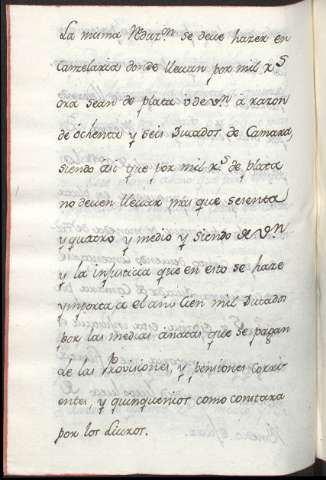 La misma Reduz.ⁿ se deve hazer en
Canzelaria donde llevan por mil r.ˢ
ora sean de plata ò de v.ⁿ a razon
de ochenta y seis Ducados de Camara,
siendo asi que por mil r.ˢ de plata
no deven llevar mas que sesenta
y quatro y medio y siendo de v.ⁿ
y la injusticia que en esto se haze
ymporta a el año Cien mil Ducados
por las medias anatas que se pagan
de las Provisiones, y pensiones Corri-
entes, y quinquenios como constara
por los Livros.